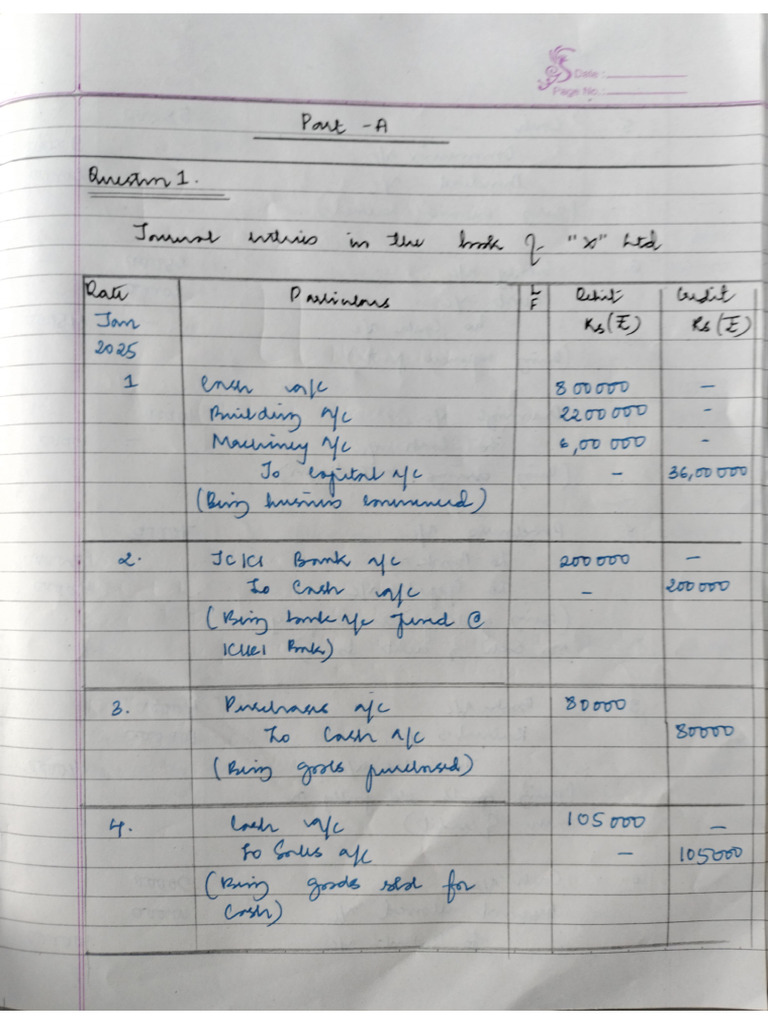 Date :
Page No.:
Part - A
Question 1.
Journal entries in the book of "X" Ltd
Date Particulars L F Debit Credit
Jan Rs (₹) Rs (₹)
2025
1 Cash a/c 800000 -
Building a/c 2200000 -
Machinery a/c 6,00 000 -
To Capital a/c - 36,00000
(Being business commenced)
2. ICICI Bank a/c 200000 -
To Cash a/c - 200000
(Being bank a/c @
ICICI Bank)
3. Purchases a/c 80000
To Cash a/c 80000
(Being goods purchased)
4. Cash a/c 105000 -
To Sales a/c - 105000
(Being goods sold for
Cash)